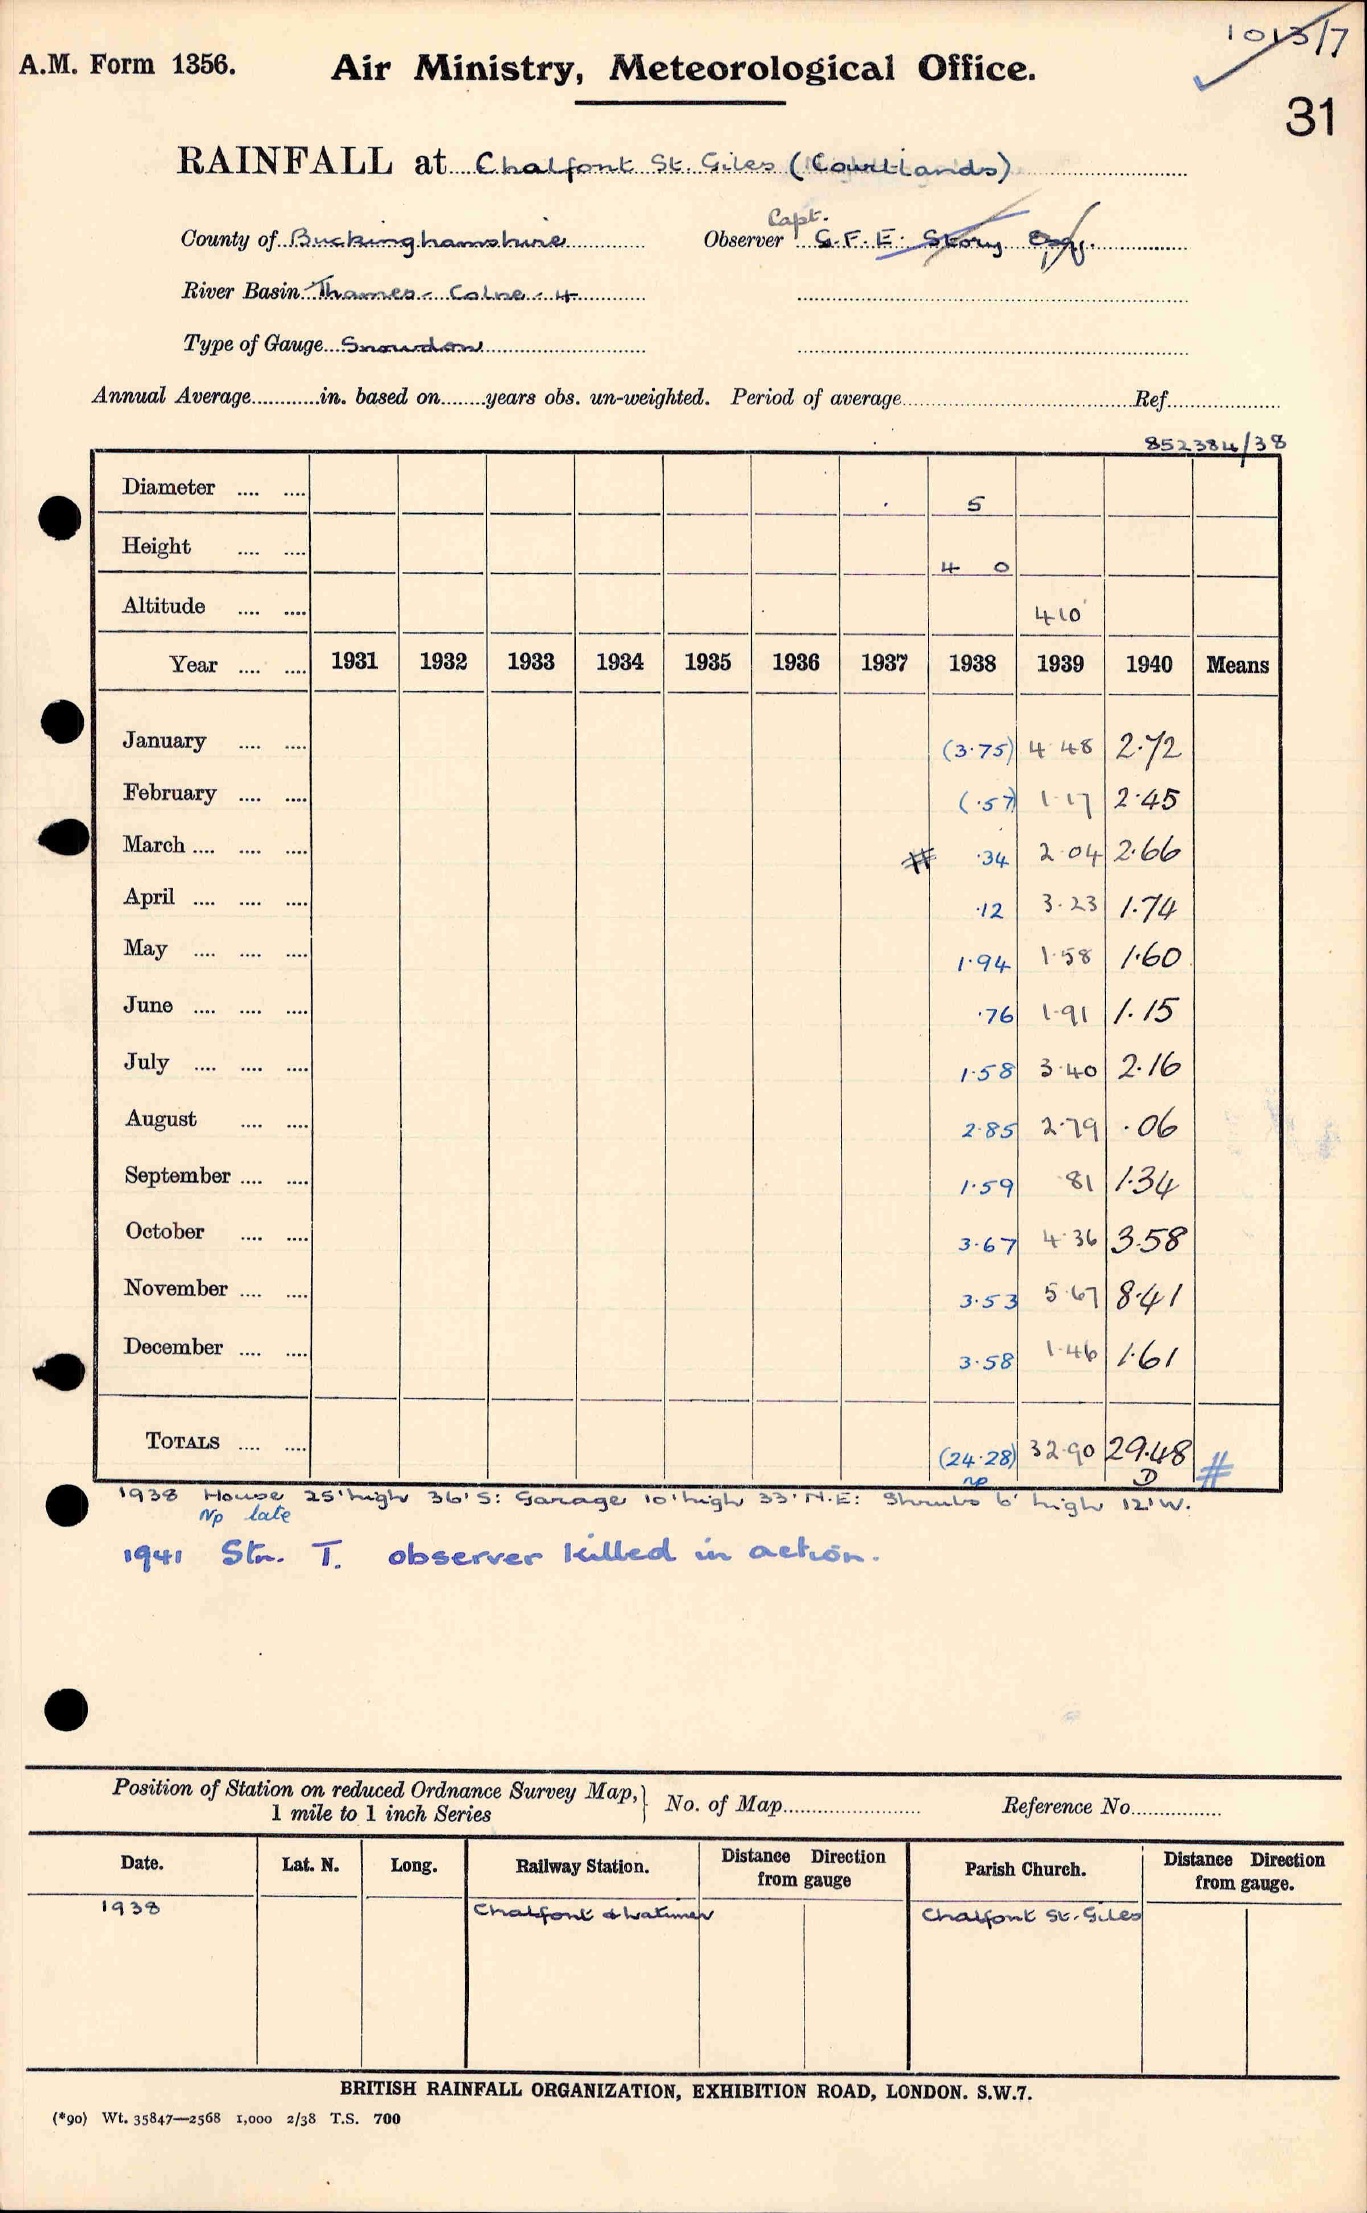 1013/7
A.M. Form 1356. Air Ministry, Meteorological Office.
31
RAINFALL at Chalfont St. Giles (Courtlands)
Capt.
County of Buckinghamshire Observer G.F.E. Story Esq.
River Basin Thames - Colne - 4
Type of Gauge Snowdon
Annual Average............in. based on.......years obs. un-weighted. Period of average........................Ref............
852384/38
Diameter .... .... 5
Height .... .... 4 0
Altitude .... .... 410
Year .... .... 1931 1932 1933 1934 1935 1936 1937 1938 1939 1940 Means
January .... .... (3·75) 4·48 2·72
February .... .... (·57) 1·17 2·45
March .... .... .... # ·34 2·04 2·66
April .... .... .... ·12 3·23 1·74
May .... .... .... 1·94 1·58 1·60
June .... .... .... ·76 1·91 1·15
July .... .... .... 1·58 3·40 2·16
August .... .... 2·85 2·79 ·06
September .... .... 1·59 81 1·34
October .... .... 3·67 4·36 3·58
November .... .... 3·53 5·67 8·41
December .... .... 3·58 1·46 1·61
TOTALS .... .... (24·28) 32·90 29·48 #
np D
1938 House 25' high 36' S: Garage 10' high 33' N.E: Shrubs 6' high 12' W.
Np late
1941 Stn. T. observer killed in action.
Position of Station on reduced Ordnance Survey Map,} No. of Map........................ Reference No................
1 mile to 1 inch Series
Date. Lat. N. Long. Railway Station. Distance Direction from gauge Parish Church. Distance Direction from gauge.
1938 Chalfont & Latimer Chalfont St. Giles
BRITISH RAINFALL ORGANIZATION, EXHIBITION ROAD, LONDON. S.W.7.
(*90) Wt. 35847—2568 1,000 2/38 T.S. 700